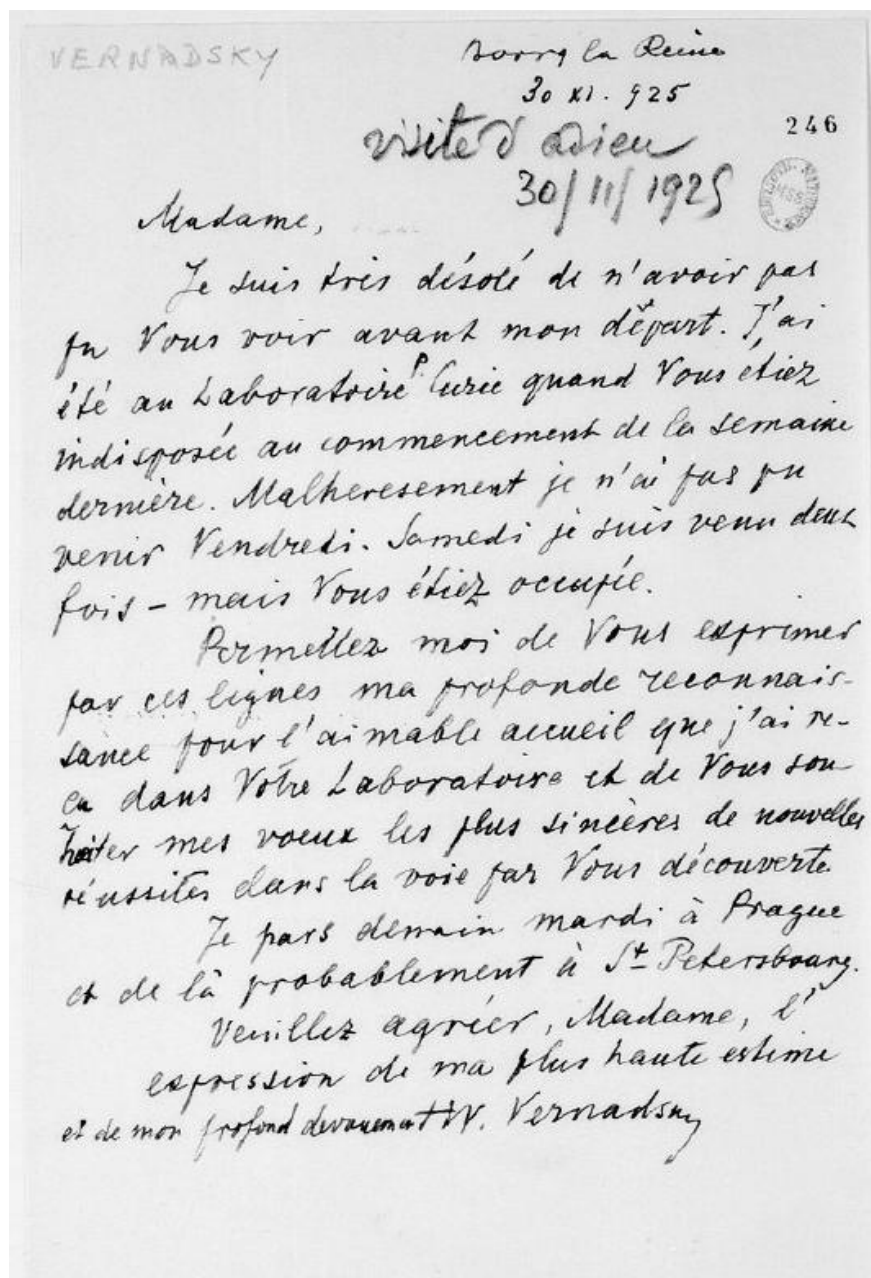 VERNADSKY
Bourg la Reine
30 XI. 925
visite d'adieu
246
30/11/1925
Madame,
Je suis très désolé de n'avoir pas
pu Vous voir avant mon départ. J'ai
été au Laboratoire P. Curie quand Vous étiez
indisposée au commencement de la semaine
dernière. Malheresement je n'ai pas pu
venir Vendredi. Samedi je suis venu deux
fois – mais Vous étiez occupée.
Permettez moi de Vous exprimer
par ces lignes ma profonde reconnais-
sance pour l'aimable accueil que j'ai re-
çu dans Votre Laboratoire et de Vous sou
haiter mes voeux les plus sincères de nouvelles
réussites dans la voie par Vous découverte.
Je pars demain mardi à Prague
et de là probablement à St Petersbourg.
Veuillez agréer, Madame, l'
expression de ma plus haute estime
et de mon profond devouement W. Vernadsky